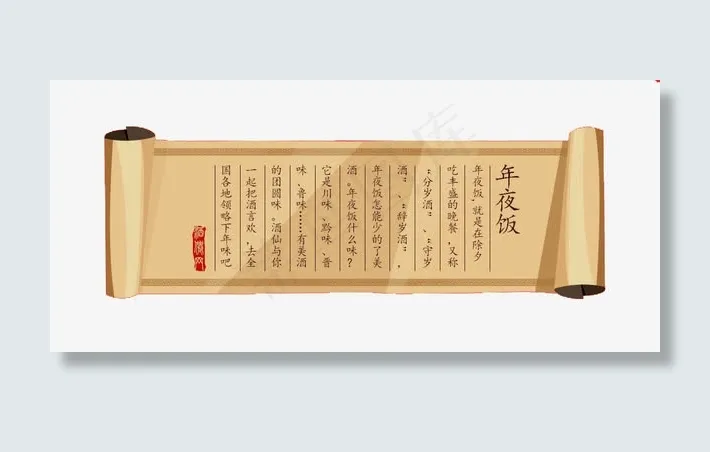 年夜饭
年夜饭，就是在除夕
吃丰盛的晚餐，又称
“分岁酒”、“守岁
酒”、“辞岁酒”，
年夜饭怎能少的了美
酒。年夜饭什么味？
它是川味、黔味、晋
味、鲁味……有美酒
的团圆味。酒仙与你
一起把酒言欢，去全
国各地领略下年味吧